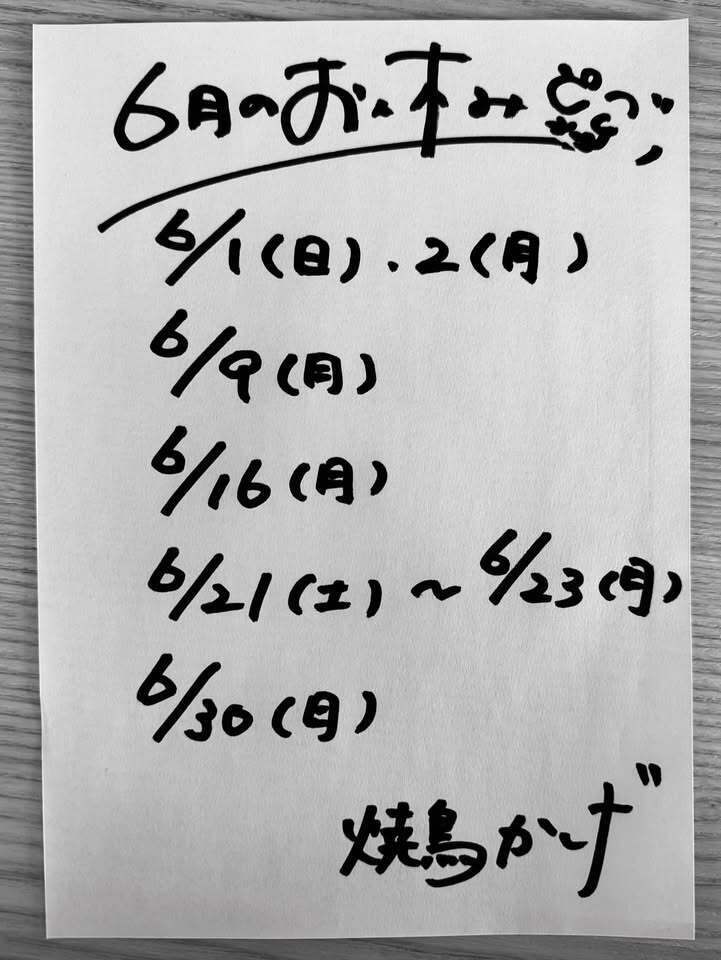 6月のお休み
6/1(日).2(月)
6/9(月)
6/16(月)
6/21(土)~6/23(月)
6/30(月)
焼鳥かげ